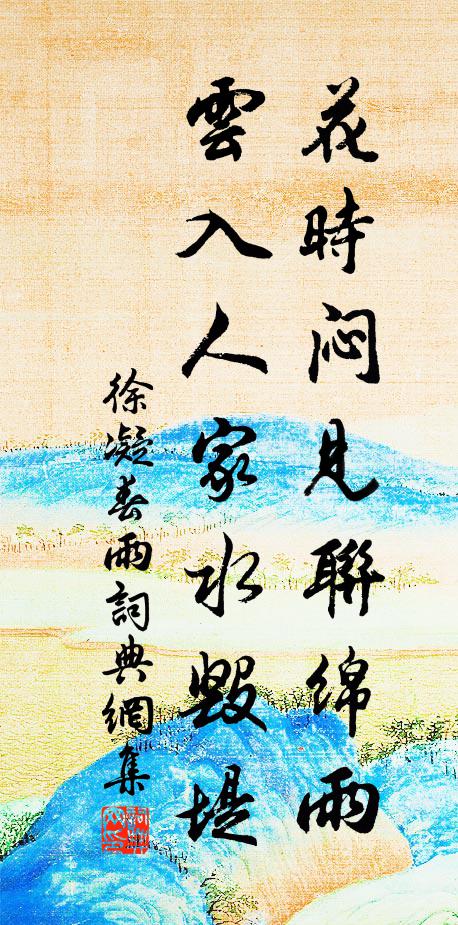 花時闷見聯绵雨
雲入人家水毁堤
徐凝春雨詞典網集